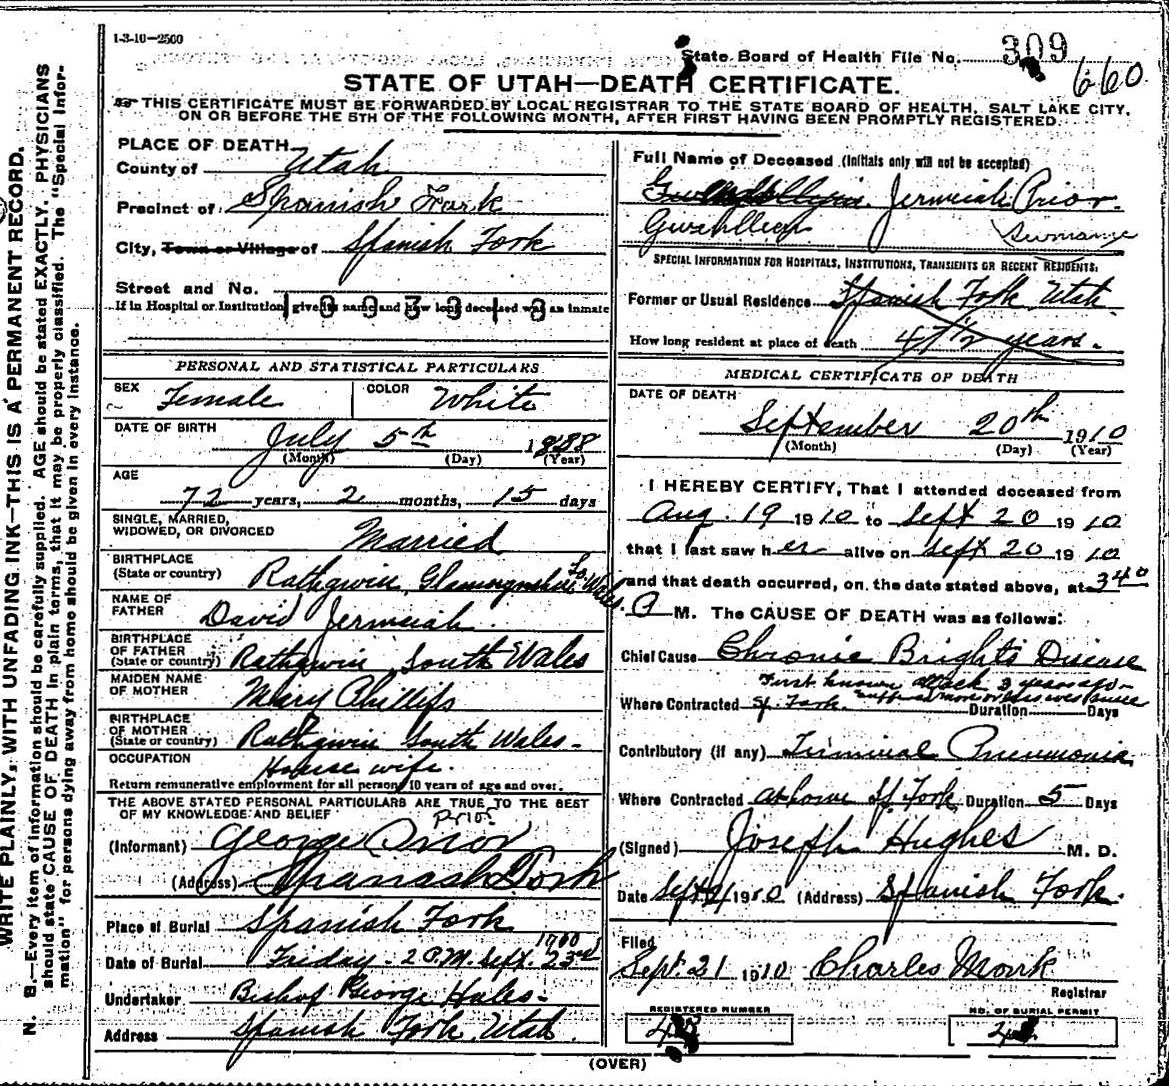 1-3-10-2500
State Board of Health File No. 309
660
STATE OF UTAH—DEATH CERTIFICATE.
THIS CERTIFICATE MUST BE FORWARDED BY LOCAL REGISTRAR TO THE STATE BOARD OF HEALTH, SALT LAKE CITY,
ON OR BEFORE THE 5TH OF THE FOLLOWING MONTH, AFTER FIRST HAVING BEEN PROMPTLY REGISTERED.
WRITE PLAINLY, WITH UNFADING INK—THIS IS A PERMANENT RECORD.
N. B.—Every item of information should be carefully supplied. AGE should be stated EXACTLY. PHYSICIANS
should state CAUSE OF DEATH in plain terms, that it may be properly classified. The "Special Infor-
mation" for persons dying away from home should be given in every instance.
PLACE OF DEATH
County of Utah
Precinct of Spanish Fork
City, Town or Village of Spanish Fork
Street and No.
If in Hospital or Institution, give its name and how long deceased was an inmate
PERSONAL AND STATISTICAL PARTICULARS
SEX Female COLOR White
DATE OF BIRTH July 5th 1838
(Month) (Day) (Year)
AGE
72 years, 2 months, 15 days
SINGLE, MARRIED,
WIDOWED, OR DIVORCED Married
BIRTHPLACE
(State or country) Rathgwin, So. Wales
NAME OF
FATHER David Jermiah
BIRTHPLACE
OF FATHER
(State or country) Rathgwin South Wales
MAIDEN NAME
OF MOTHER Mary Phillips
BIRTHPLACE
OF MOTHER
(State or country) Rathgwin South Wales
OCCUPATION House wife.
Return remunerative employment for all persons 10 years of age and over.
THE ABOVE STATED PERSONAL PARTICULARS ARE TRUE TO THE BEST
OF MY KNOWLEDGE AND BELIEF
Prior
(Informant) George Prior
(Address) Spanish Fork
Place of Burial Spanish Fork
Date of Burial Friday 2 P.M. Sept. 23rd
Undertaker Bishop George Hales
Address Spanish Fork Utah.
Full Name of Deceased (Initials only will not be accepted)
Jermiah Prior.
Gwenllian Surname
SPECIAL INFORMATION FOR HOSPITALS, INSTITUTIONS, TRANSIENTS OR RECENT RESIDENTS:
Former or Usual Residence Spanish Fork Utah
How long resident at place of death 47 1/2 years.
MEDICAL CERTIFICATE OF DEATH
DATE OF DEATH
September 20th 1910
(Month) (Day) (Year)
I HEREBY CERTIFY, That I attended deceased from
Aug. 19 1910 to Sept 20 1910
that I last saw her alive on Sept 20 1910
and that death occurred, on the date stated above, at 340
P M. The CAUSE OF DEATH was as follows:
Chief Cause Chronic Brights Disease
First known attack 3 years ago
Where Contracted Sp. Fork. Duration Days
Contributory (if any) Terminal Pneumonia
Where Contracted at home Sp Fork Duration 5 Days
(Signed) Joseph Hughes M. D.
Date Sept 21 1910 (Address) Spanish Fork.
Filed
Sept. 21 1910 Charles Monk
Registrar
REGISTERED NUMBER
NO. OF BURIAL PERMIT
(OVER)